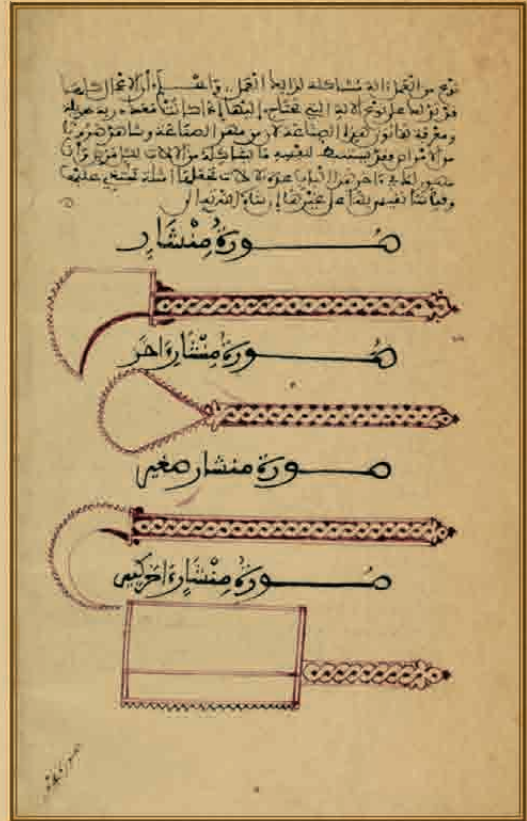 نوع من العمل الة مشاكلة لذلك العمل واعلم أن الاعمال أيضا
قد تدلك على نوع الالة التي تحتاج إليها إذا كانت معك دربة طويلة
ومعرفة بفنون هذه الصناعة لان من مهر الصناعة وشاهد ضروبا
من الأمراض فقد يستنبط لنفسه ما يشاكله من الالات لكل مرض وأنا
مصور لك في ءاخر هذا الباب عدة ءالات تجعلها امثلة تحتذي عليها
وقياسا تقيس بها على غيرها إن شاء الله تعالى
صُورَةُ مِنْشَار
صُورَةُ مِنْشَار ءَاخَر
صورة منشار صغير
صُورَةُ مِنْشَار ءَاخر كبير